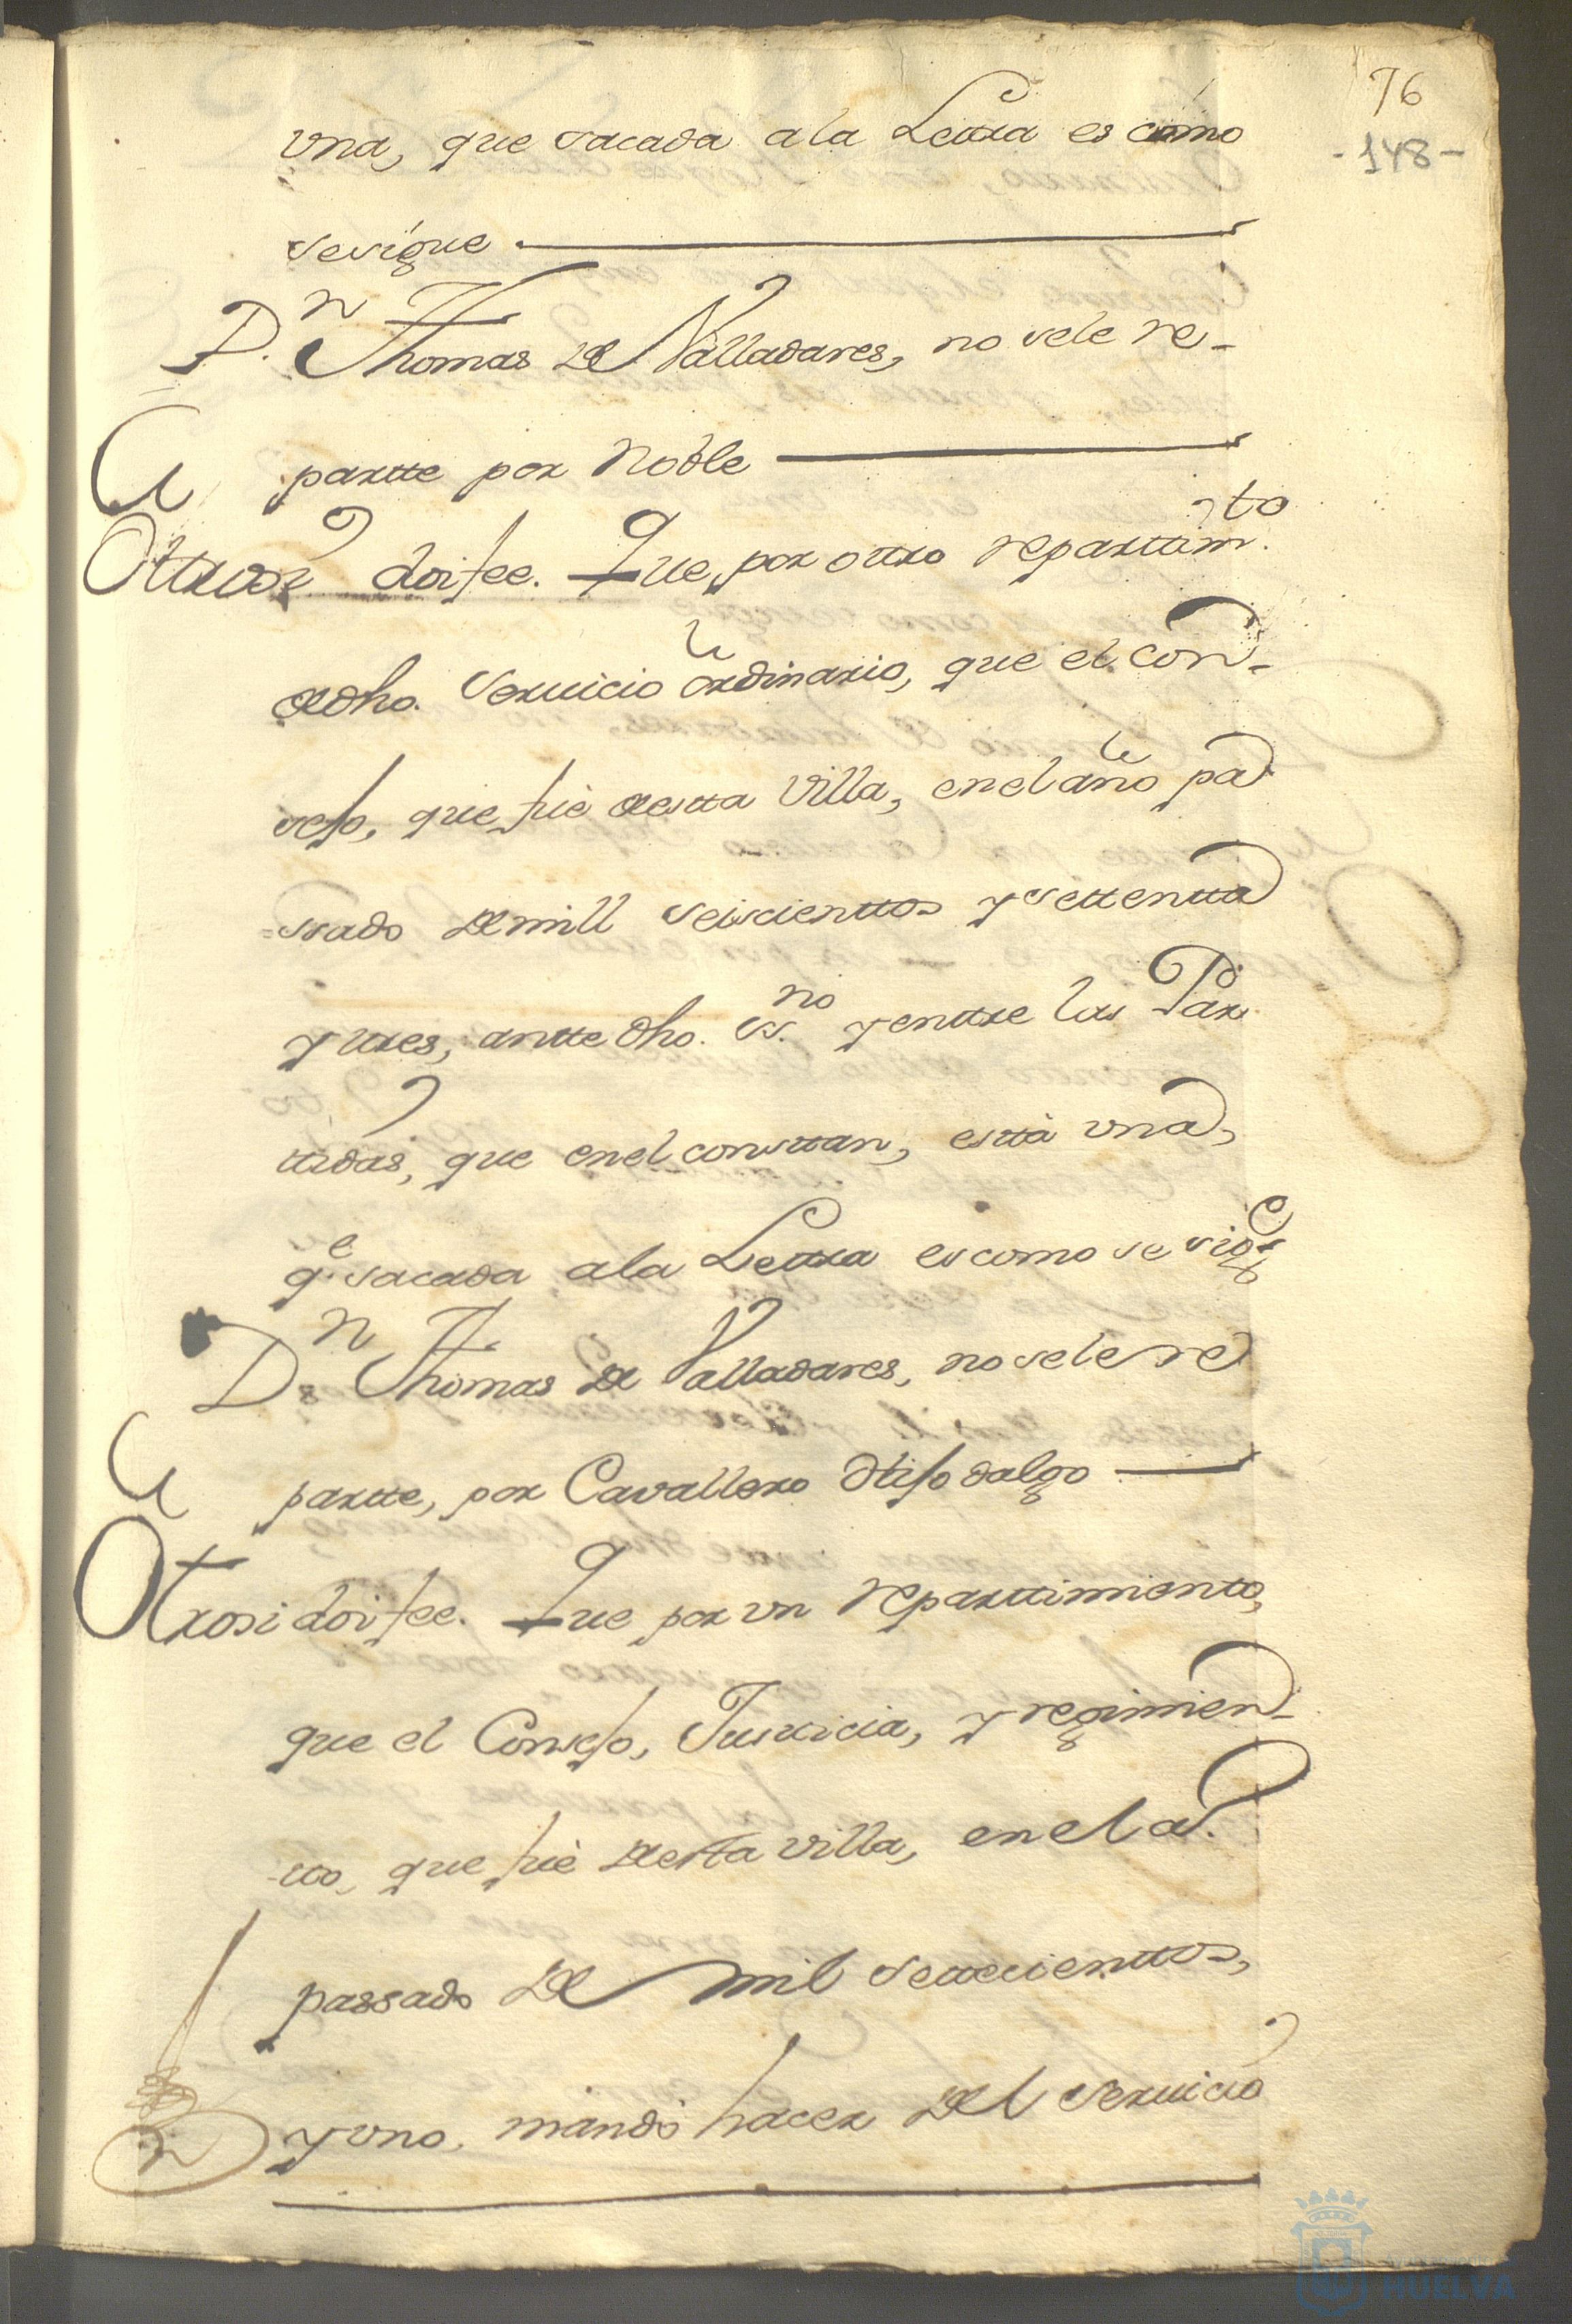 76
-148-
vna, que sacada a la Lettra es como
se sigue
D.n Thomas de Valladares, no se le re-
partte por Noble
Ottrosi doi fee. Que, por ottro reparttim.to
de dho. Seruicio ordinario, que el Con-
sejo, que fuè de estta Villa, en el año pa
ssado de mill seiscienttos y settentta
y ttres, antte dho. ss.no y enttre las Par
ttidas, que en el consttan, esttà vna,
q.e sacada a la Lettra es como se sigue
D.n Thomas de Valladares, no se le re
partte, por Cavallero Hijo dalgo
Otrosi doi fee. Que por vn reparttimientto,
que el Consejo, Justticia, y regimien-
tto, que fuè de esta villa, en el a.o
passado de mil settecienttos,
y vno, mandò hacer del Seruicio
HUELVA